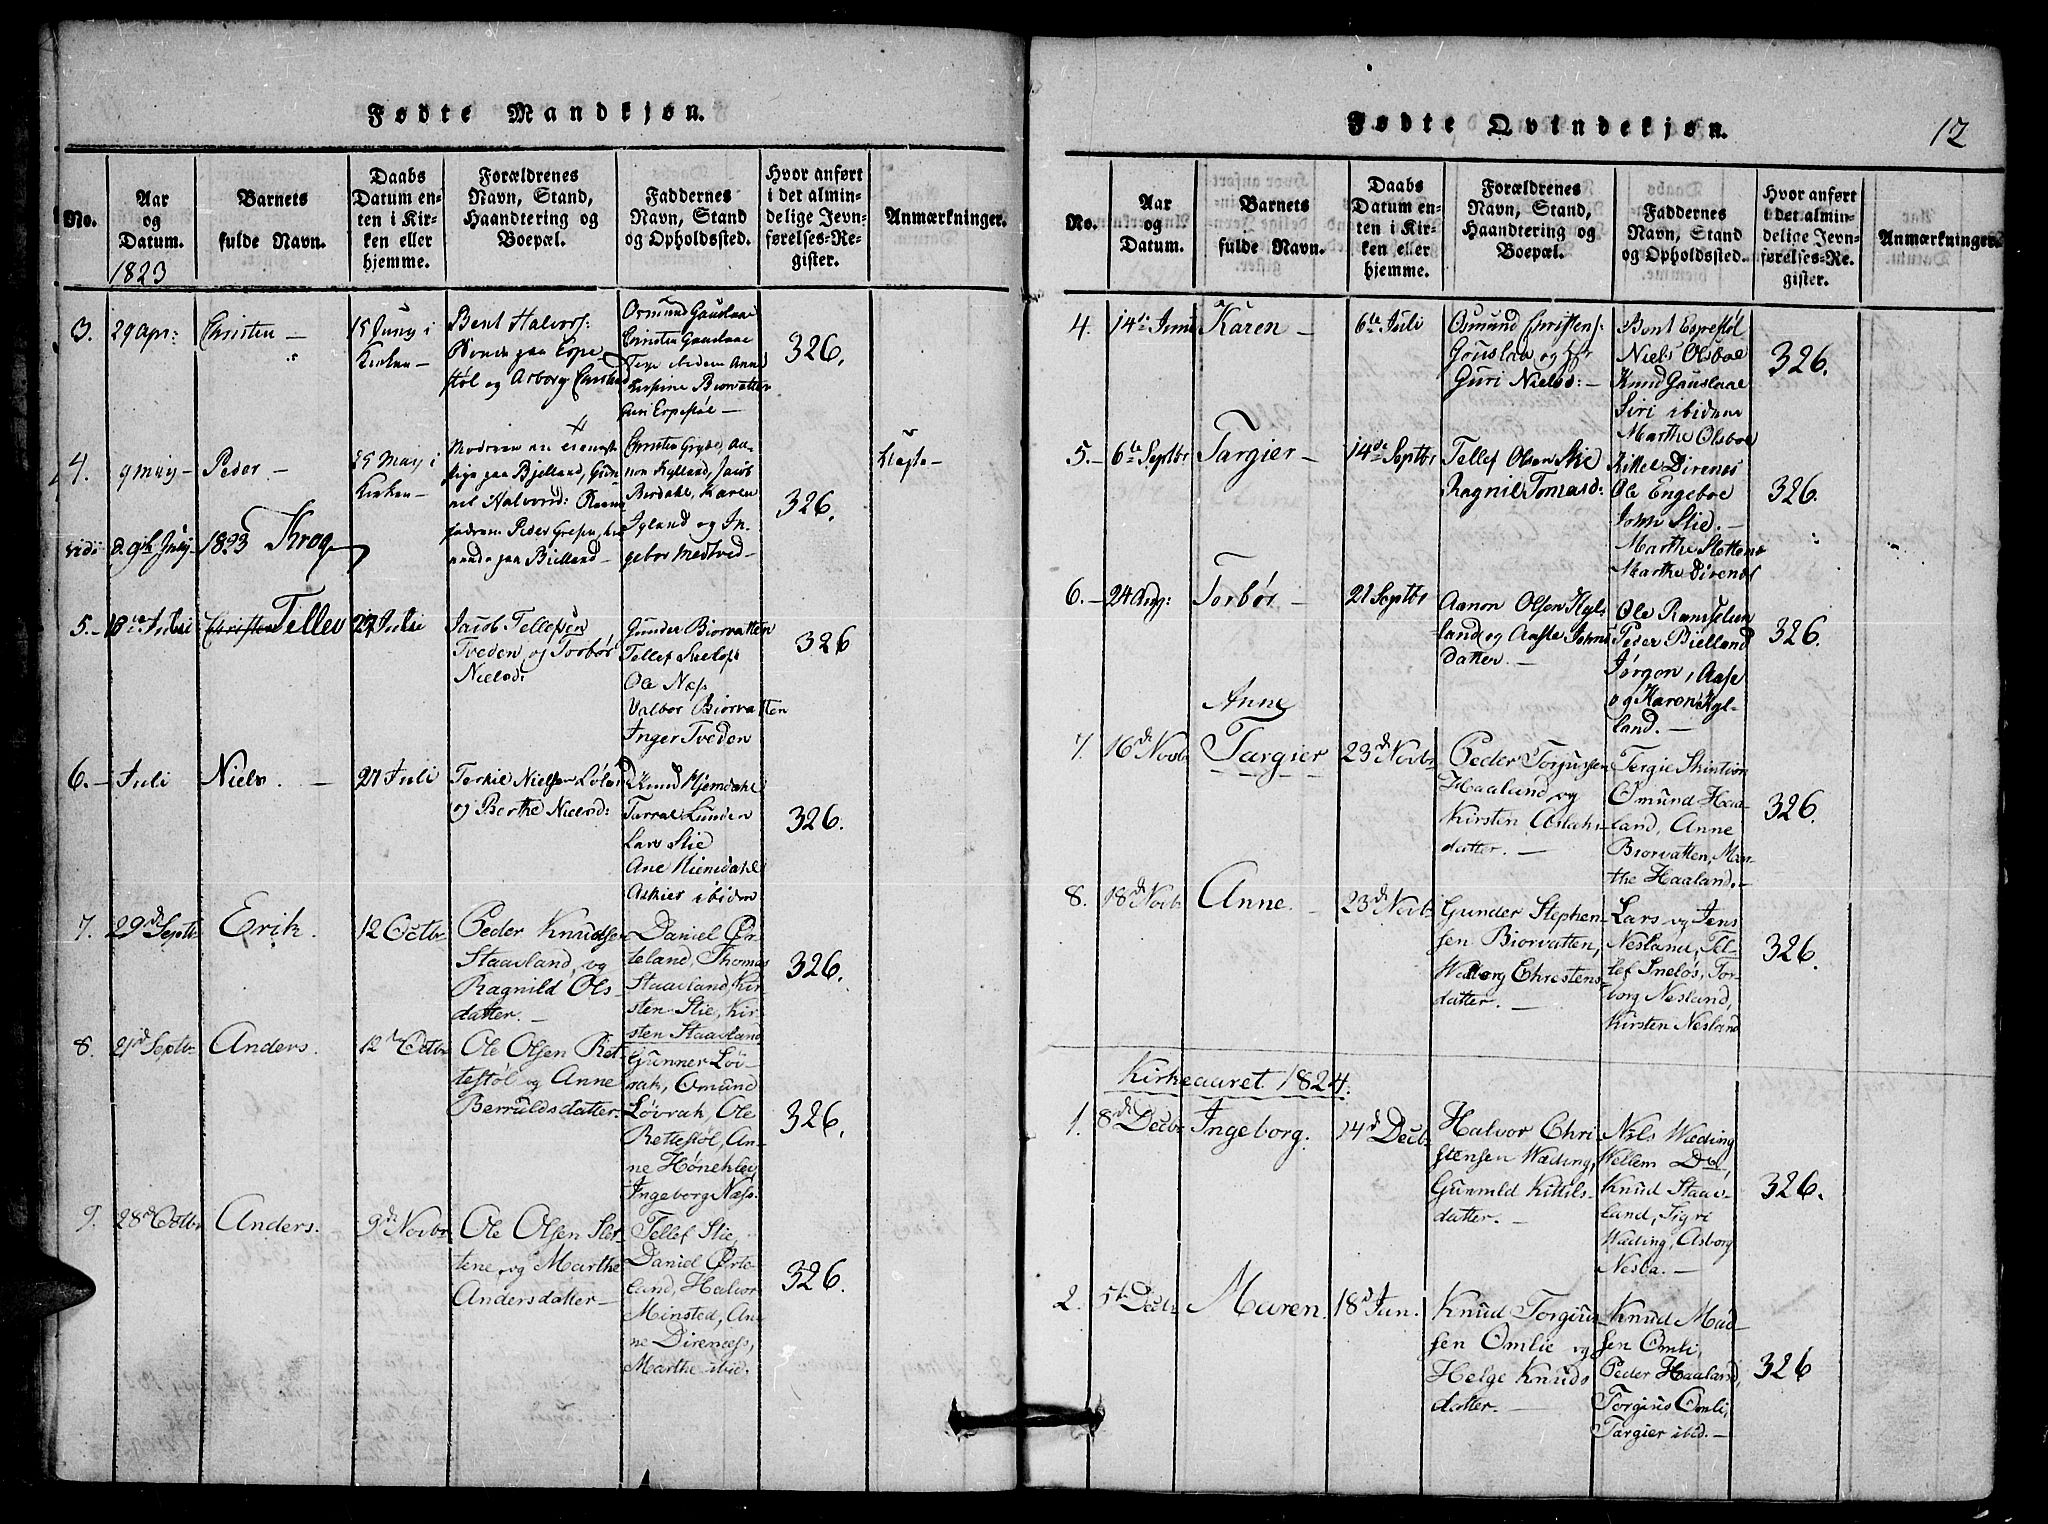 Fødte Mandkjøn.
No.
Aar
og
Datum.
1823
Barnets
fulde Navn.
Daabs
Datum en-
ten i Kir-
ken eller
hjemme.
Forældrenes
Navn, Stand,
Haandtering og
Boepæl.
Faddernes
Navn, Stand
og Opholdssted.
Hvor anført
i det almin-
delige Jevn-
førelses-Re-
gister.
Anmærkninger.
3.
29 Apr:
Christen –
15 Juny i
Kirken –
Bent Halvors:
Bonde paa Espe-
støl og Asborg
Osmund Gauslaae
Christen Gauslaae
Terje ibidem Anne
Kirstine Biorvatten
Guri Espestøl –
326.
4.
9 may –
Peder –
25 May i
Kirken –
Moderen
paa Bjelland, Gun-
nil Halvorsd:
faderen Peder
paa Bielland –
Christen Gryde, Aa-
non Kylland, Jacob
Birdahl, Karen
Igland og In-
gebor Medtved –
326.
vidi d. 9de July – 1823 Krog
5. –
Juli
Christen Tellev
27 Juli
Jacob Tellefsen
Tveden og Torbør
Nielsd:
Gunder Biorvatten
Tellef Sneløs
Ole Næs
Valbor Biorvatten
Inger Tveden
326
6. –
Juli
Niels. –
27 Juli
Terkil Nielsen
og Berthe Nielsd:
Knud Hjemdahl
Tarral Lunden
Lars Slie
Ane Hiemdahl
Askier ibidem
326.
7.
29d Septbr
Erik.
12 Octbr
Peder Knudsen
Staavland, og
Ragnild Ols-
datter. –
Daniel Ør-
teland, Thomas
Staavland, Kir-
sten Slie, Kir-
sten Staavland
326.
8.
21d Septbr
Anders.
12te Octbr
Ole Olsen Ret-
testøl og Anne
Berruldsdatter.
Gunner Løv-
rak, Omund
Løvrak, Ole
Rettestøl, An-
ne
Ingeborg Næs.
326.
9.
28d Octbr
Anders.
9de Novbr
Ole Olsen Slet-
tene, og Marthe
Andersdatter –
Tellef Slie,
Daniel Ørte-
land, Halvor
Minsted, An-
ne Direnæs,
Marthe ibid.
326.
Fødte Qvindekjøn.
12
No.
Aar
og
Datum.
Barnets
fulde Navn.
Daabs
Datum en-
ten i Kir-
ken eller
hjemme.
Forældrenes
Navn, Stand,
Haandtering og
Boepæl.
Faddernes
Navn, Stand
og Opholdssted.
Hvor anført
i det almin-
delige Jevn-
førelses-Re-
gister.
Anmærkninger.
4.
14de Juni
Karen –
6te Juli
Osmund Christens:
Gouslaa og
Guri Nielsd: –
Bent Espestøl
Niels Olsboe
Knud Gauslaae
Siri ibidem
Marthe Olsboe
326.
5. –
6te Septbr
Targier –
14de Septbr
Tellef Olsen Slie
Ragnil Tomasd:
Kittel Direnes
Ole Engeboe
John Slie. –
Marthe Slettene
Marthe Direnes
326.
6. –
24 Aug:
Torbør –
21 Septbr
Aanon Olsen Kyl-
land og Aaste Johns
datter. –
Ole Ramselien
Peder Bielland
Jørgon, Aase
og Karen Kyl-
land. –
326.
7.
16de Novbr
Anne
Targier
23de Novbr
Peder Torjussen
Haaland og
Kirsten Aslaks-
datter. –
Tergie
Omund Haa-
land, Anne
Biorvatten, Mar-
the Haaland. –
326.
8.
18de Novbr
Anne. –
23de Novbr
Gunder Stephen-
sen Biorvatten,
Walborg Christens-
datter. –
Lars og Jens
Nesland, Tel-
lef Sneløs, Tor-
borg Nesland,
Kirsten Nesland
326.
Kirkeaaret 1824.
1.
8de Decbr
Ingeborg.
14d Decbr
Halvor Chri-
stensen Wæding,
Gunnild Kittils-
datter. –
Nils Wæding
Wellem Do,
Knud Staav-
land, Sigri
Wæding, Asborg
Nesba. –
326.
2.
5te Decbr
Maren.
18d Jan.
Knud Torgius-
sen Omlie og
Helge Knuds
datter. –
Knud Mad-
sen Omli,
Peder Haaland,
Torgius Omli,
Targier ibid. –
326